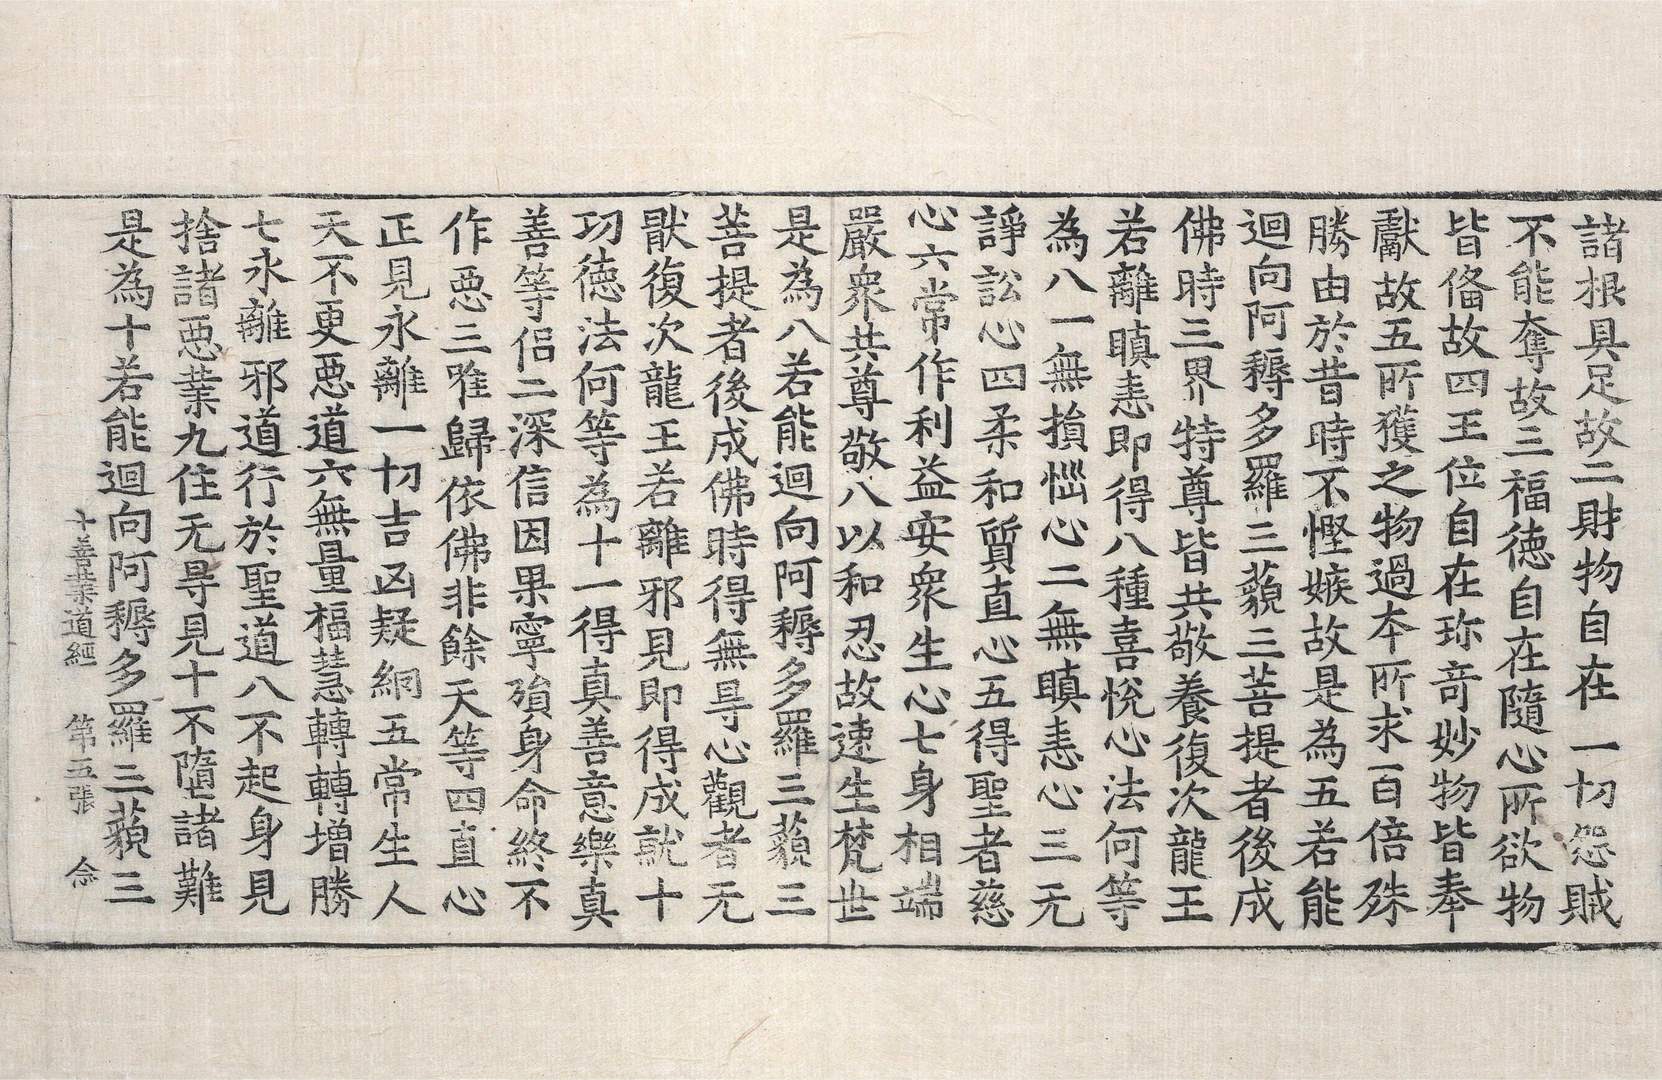 諸根具足故二財物自在一切怨賊
不能奪故三福德自在隨心所欲物
皆俻故四王位自在珎竒妙物皆奉
獻故五所獲之物過本所求百倍殊
勝由於昔時不慳嫉故是為五若能
迴向阿耨多羅三藐三菩提者後成
佛時三界特尊皆共敬養復次龍王
若離瞋恚即得八種喜悅心法何等
為八一無損惱心二無瞋恚心三无
諍訟心四柔和質直心五得聖者慈
心六常作利益安衆生心七身相端
嚴衆共尊敬八以和忍故速生梵世
是為八若能迴向阿耨多羅三藐三
菩提者後成佛時得無㝵心觀者无
猒復次龍王若離邪見即得成就十
功德法何等為十一得真善意樂真
善等侶二深信因果寧殞身命終不
作悪三唯歸依佛非餘天等四直心
正見永離一切吉凶疑網五常生人
天不更悪道六無量福慧轉轉增勝
七永離邪道行於聖道八不起身見
捨諸悪業九住无㝵見十不墮諸難
是為十若能迴向阿耨多羅三藐三
十善業道經 第五張 念